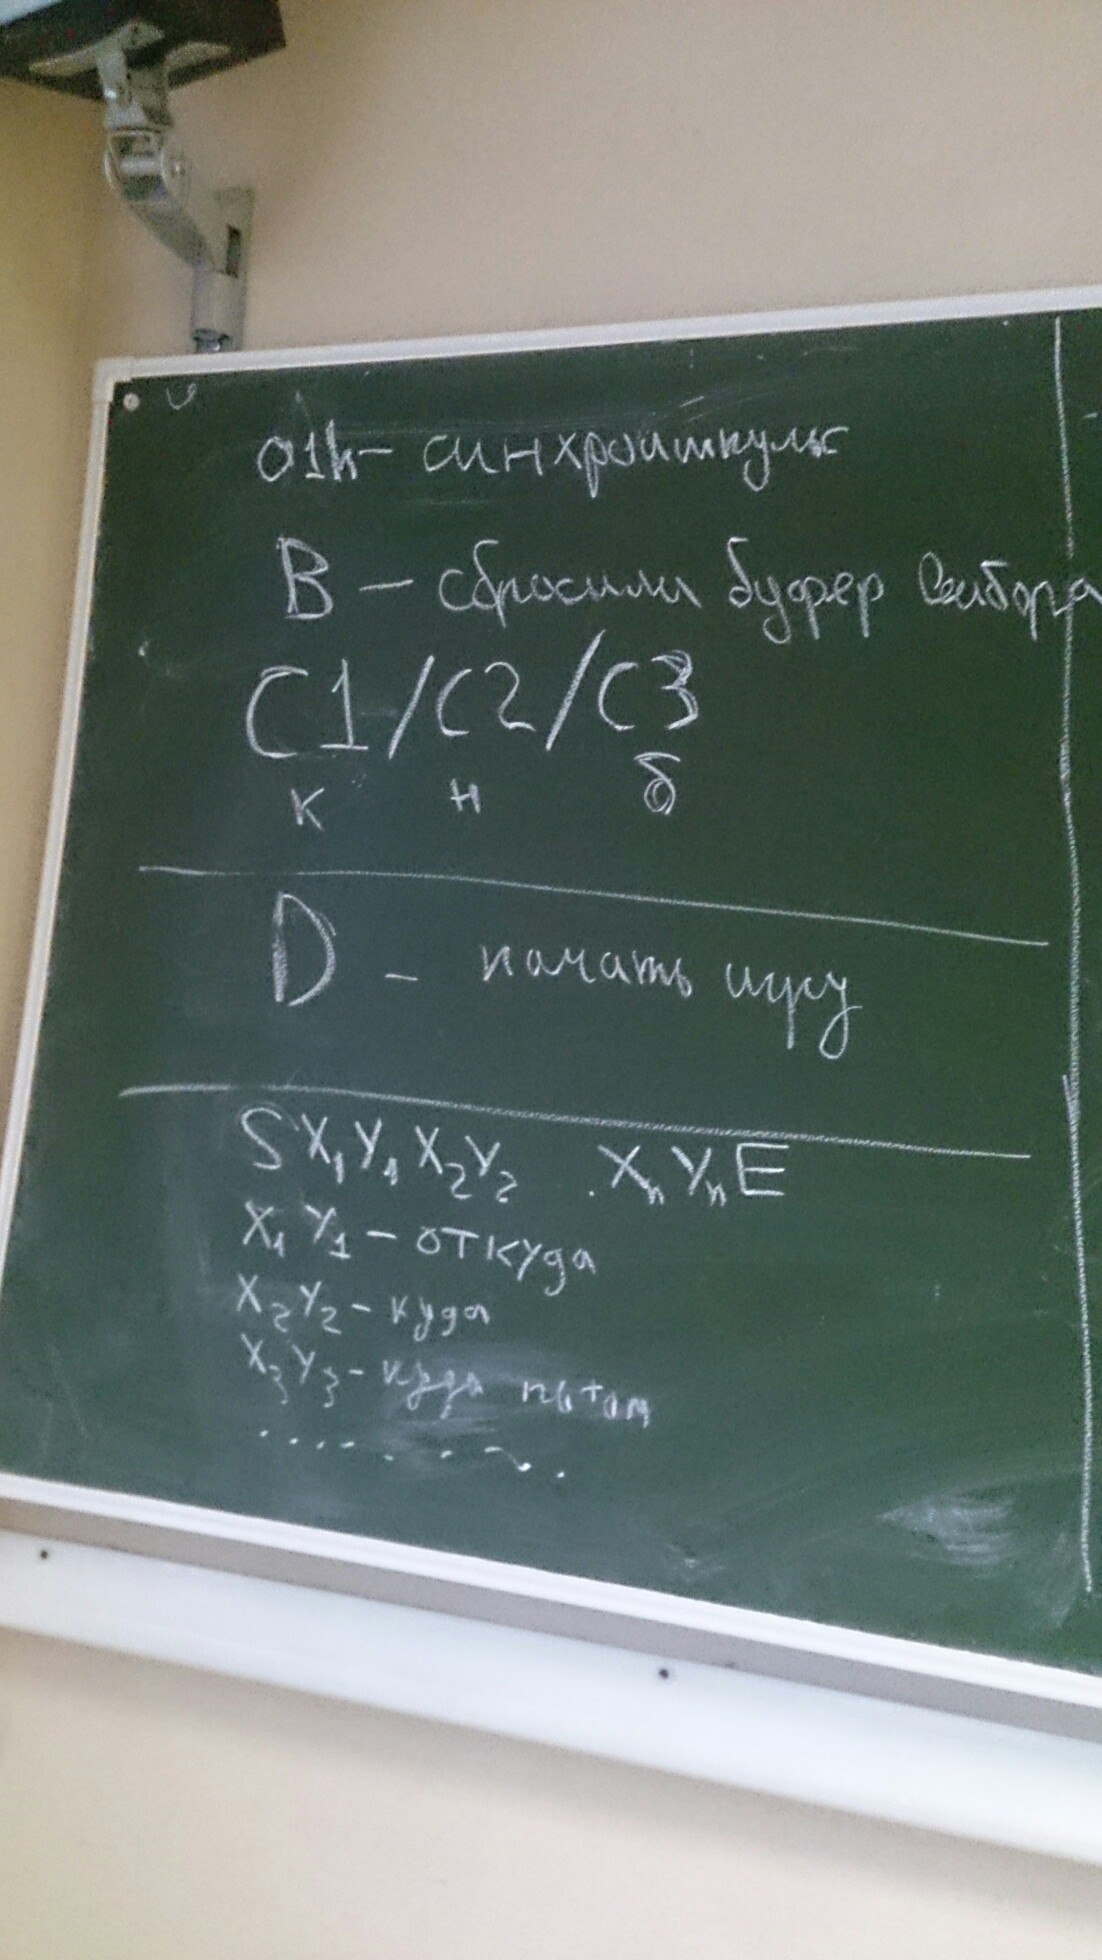 01h - синхроимпульс
B - сбросили буфер выбора
C1/C2/C3
к н б
D - начать игру
S X₁Y₁X₂Y₂ . XₙYₙE
X₁Y₁ - откуда
X₂Y₂ - куда
X₃Y₃ - куда потом
. . . . . . . .